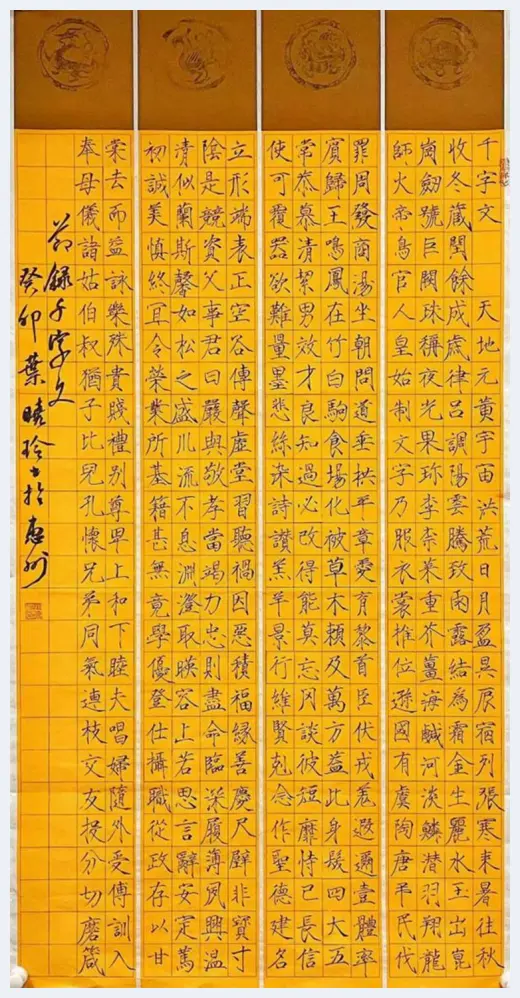 千字文 天地元黄宇宙洪荒日月盈昃辰宿列張寒来暑往秋
收冬藏閏餘成歲律呂調陽雲騰致雨露結為霜金生麗水玉出崑
崗劔號巨闕珠稱夜光果珍李柰菜重芥薑海鹹河淡鱗潜羽翔龍
師火帝鳥官人皇始制文字乃服衣裳推位遜國有虞陶唐弔民伐
罪周發商湯坐朝問道垂拱平章愛育黎首臣伏戎羌遐邇壹體率
賓歸王鳴鳳在竹白駒食場化被草木賴及萬方盖此身髮四大五
常恭慕清絜男效才良知過必改得能莫忘罔談彼短靡恃己長信
使可覆器欲難量墨悲絲染詩讃羔羊景行維賢剋念作聖德建名
立形端表正空谷傳聲虛堂習聽禍因惡積福緣善慶尺璧非寶寸
陰是競資父事君曰嚴與敬孝當竭力忠則盡命臨深履薄夙興溫
清似蘭斯馨如松之盛川流不息淵澄取暎容止若思言辭安定篤
初誠美慎終宜令榮業所基籍甚無竟學優登仕攝職從政存以甘
棠去而益詠樂殊貴賤禮別尊卑上和下睦夫唱婦隨外受傅訓入
奉母儀諸姑伯叔猶子比兒孔懷兄弟同氣連枝交友投分切磨箴
節録千字文
癸卯葉曉玲书於惠州